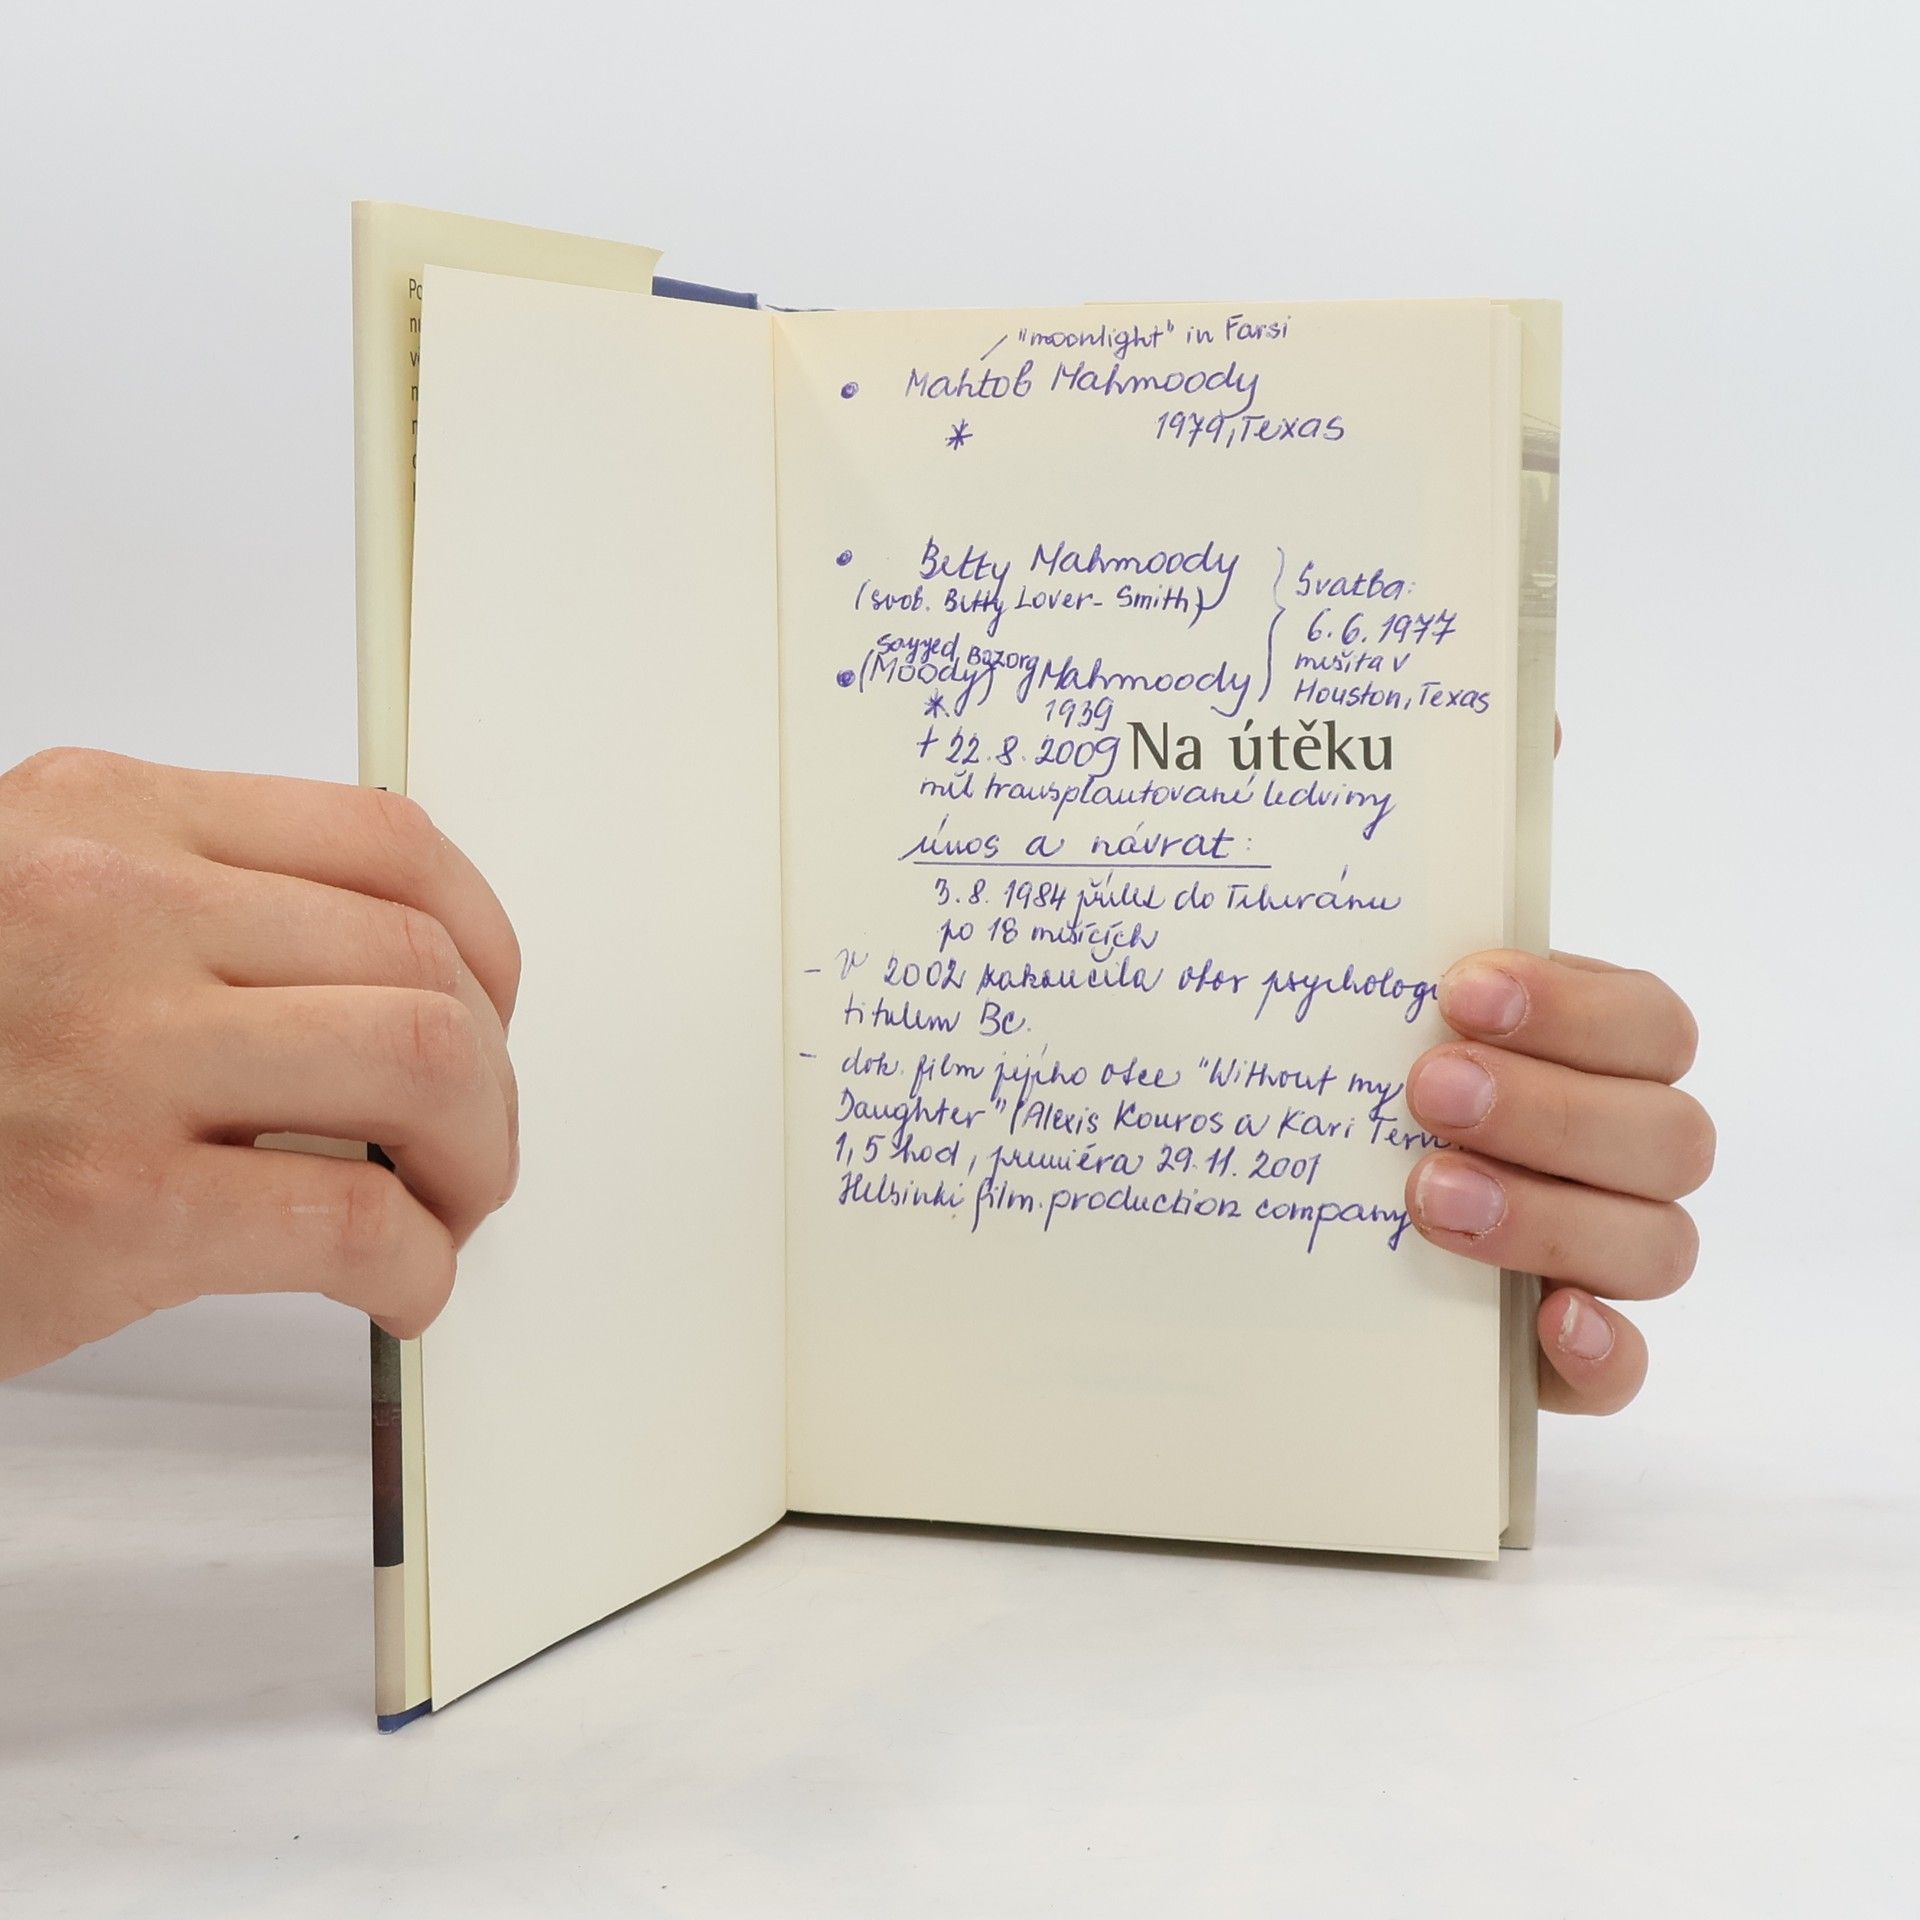 "moonlight" in Farsi
• Mahtob Mahmoody
* 1979, Texas
• Betty Mahmoody
(svob. Betty Lover-Smith)
Svatba:
6.6.1977
mešita v
Houston, Texas
Sayyed Bozorg
• (Moody) Mahmoody
* 1939
† 22.8.2009
Na útěku
měl transplantované ledviny
únos a návrat:
3.8.1984 přílet do Teheránu
po 18 měsících
- v 2002 zakončila obor psychologi
titulem Bc.
- dok. film jejího otce "Without my
Daughter" (Alexis Kouros a Kari
1,5 hod, premiéra 29.11.2001
Helsinki film. production company
Po